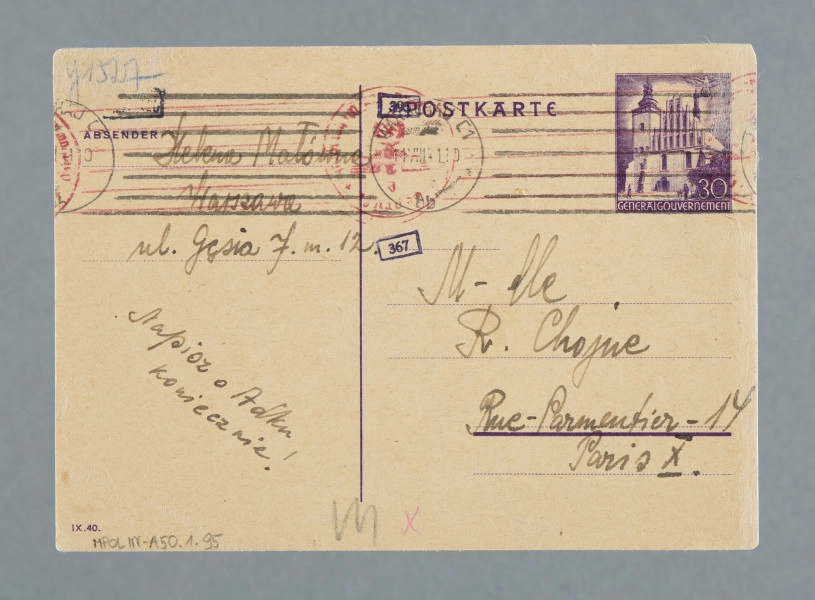 y1527
POSTKARTE
399
ABSENDER
Helena Małówna
Warszawa
ul. Gęsia 7. m. 12.
30
GENERALGOUVERNEMENT
367
M-lle
R. Chojne
Rue-Parmentier-14
Paris X.
Napisz o Adku
koniecznie!
IX.40.
MPOL IIT-A50.1.95